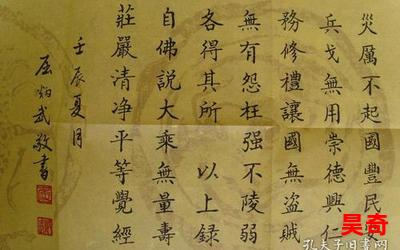 災厲不起國豐民安
兵戈無用崇德興仁
務修禮讓國無盜賊
無有怨枉强不陵弱
各得其所 以上録
自佛説大乘無量壽
莊嚴清净平等覺經
壬辰夏月
屈炳武敬書
昊奇
孔夫子旧书网